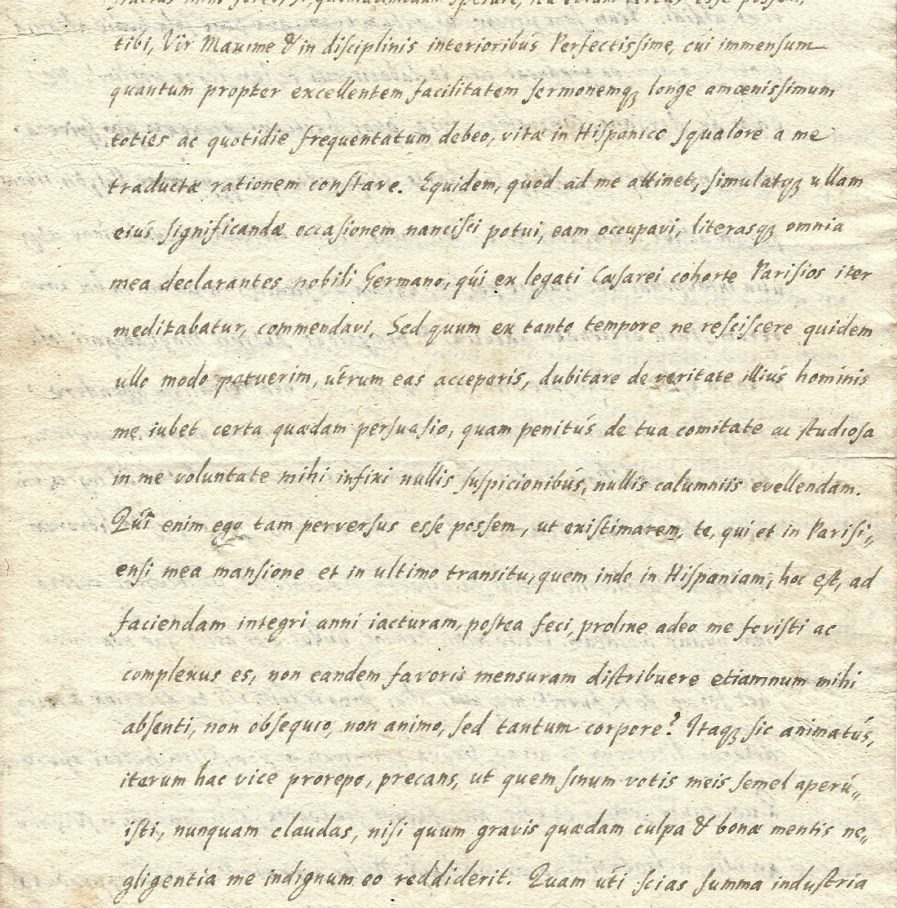 tibi, Vir Maxime & in disciplinis interioribus Perfectissime, cui immensum
quantum propter excellentem facilitatem sermonemqꝫ longe amœnissimum
toties ac quotidie frequentatum debeo, vitæ in Hispanico squalore a me
traductæ rationem constare. Equidem, quod ad me attinet, simulatqꝫ ullam
eiús significandæ occasionem nancisci potui, eam occupavi, literasqꝫ omnia
mea declarantes nobili Germano, qúi ex legati Cæsarei cohorte Parisios iter
meditabatur, commendavi. Sed quum ex tanto tempore ne resciscere quidem
ullo modo potuerim, utrum eas acceperis, dubitare de veritate illiús hominis
me iubet certa quædam persuasio, quam penitús de tua comitate ac studiosa
in me voluntate mihi infixi nullis suspicionibús, nullis calumniis evellendam.
Quî enim ego tam perversus esse possem, ut existimarem, te, qui et in Parisi„
ensi mea mansione et in ultimo transitu, quem inde in Hispaniam, hoc est, ad
faciendam integri anni iacturam, postea feci, prolixe adeo me fovisti ac
complexus es, non eandem favoris mensuram distribuere etiamnum mihi
absenti, non obsequio, non animo, sed tantum corpore? Itaqꝫ sic animatús,
iterum hac vice prorepo, precans, út quem sinum votis meis semel aperú„
isti, nunquam claudas, nisi quum gravis quædam culpa & bonæ mentis ne„
gligentia me indignum eo reddiderit. Quam úti scias summa industria